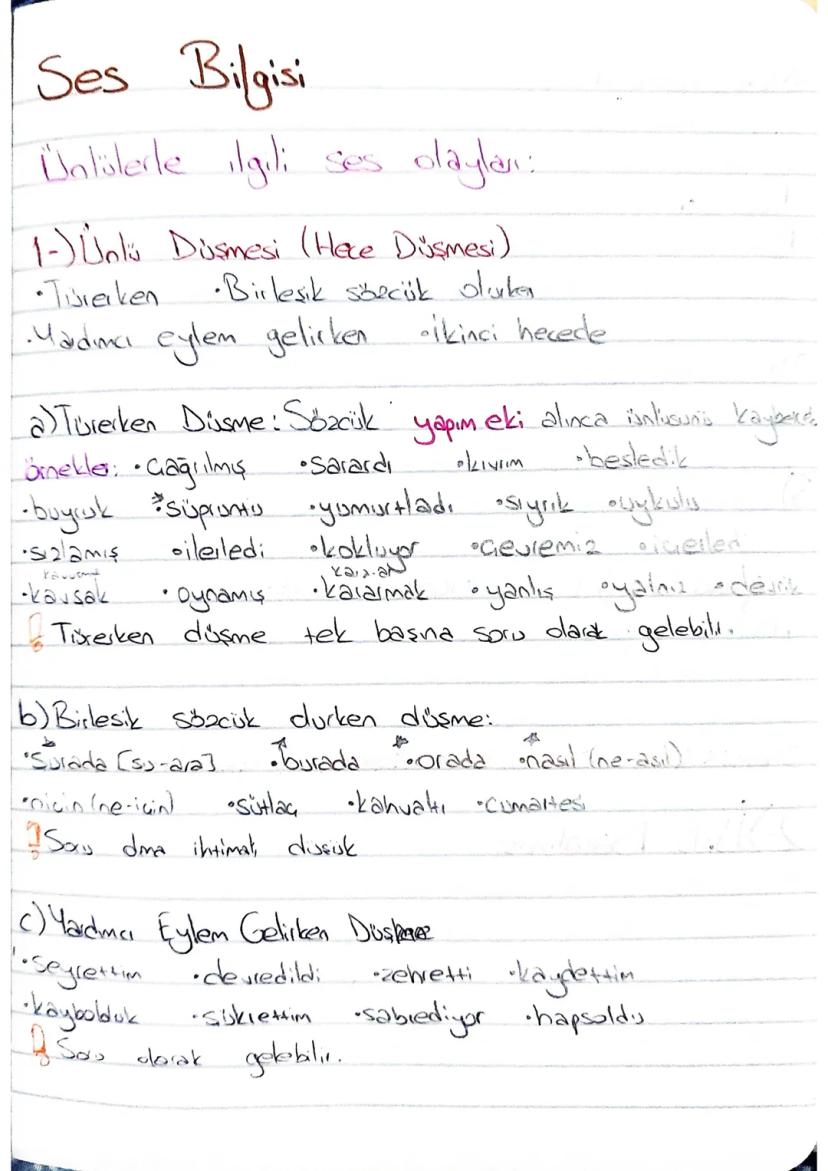 Ses Bilgisi
Ünlülerle ilgili ses olayları:
1-) Ünlü Düşmesi (Hece Düşmesi)
• Türerken • Birleşik sözcük olurken
• Yadımcı eylem gelirken • ikinci hecede
a) Türerken Düşme: Sözcük yapım eki alınca ünlüsünü kaybeder.
Örnekler: • Çağrılmış • Sarardı • kıvrım • besledik
• buyruk • süprüntü • yumurtladı • sıyrık • uykulu
• sızlamış • ilerledi • kokluyor • çevremiz • içerled
• kavşak • oynamış • kararmak • yanlış • yalnız • devrik
Türerken düşme tek başına soru olarak gelebilir.
b) Birleşik sözcük olurken düşme:
• Şurada [şu-ara] • burada • orada • nasıl (ne-asıl)
• niçin (ne-için) • sütlaç • kahvaltı • cumartesi
! Soru olma ihtimali düşük
c) Yardımcı Eylem Gelirken Düşme
• seyrettim • devredildi • zehretti • kaydettim
• kaybolduk • şükrettim • sabrediyor • hapsoldu
! Soru olarak gelebilir.